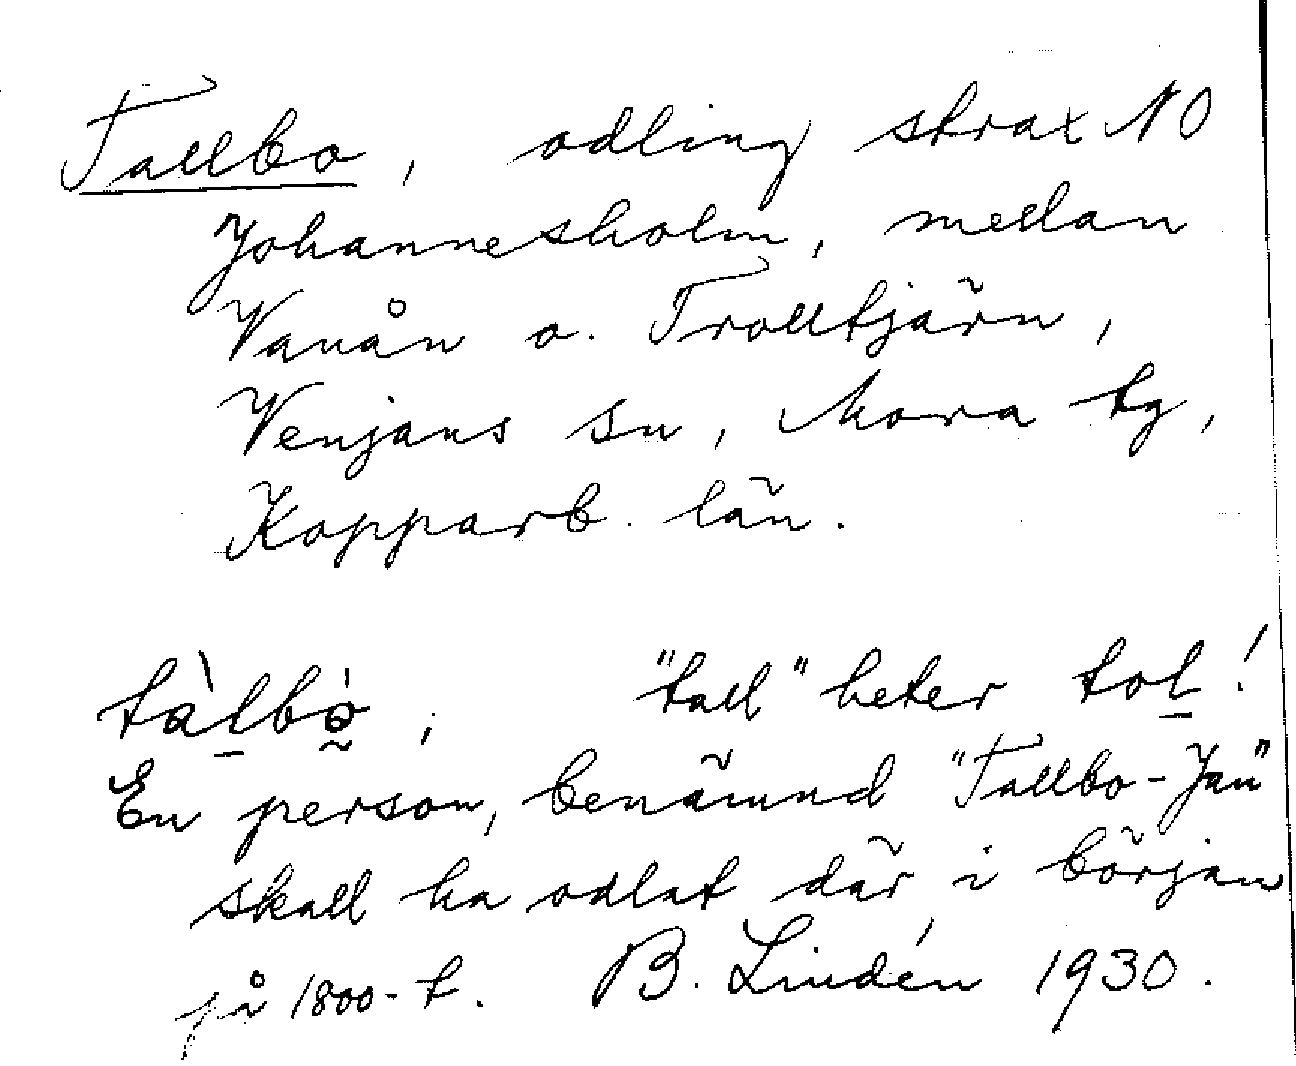 Tallbo, odling strax NO
Johannesholm, mellan
Vanån o. Trolltjärn,
Venjans sn, Mora tg,
Kopparb. län.
tàl̠bò̰; "tall" heter tol̠!
En person, benämnd "Tallbo-Jan"
skall ha odlat där i början
på 1800-t. B. Lindén 1930.